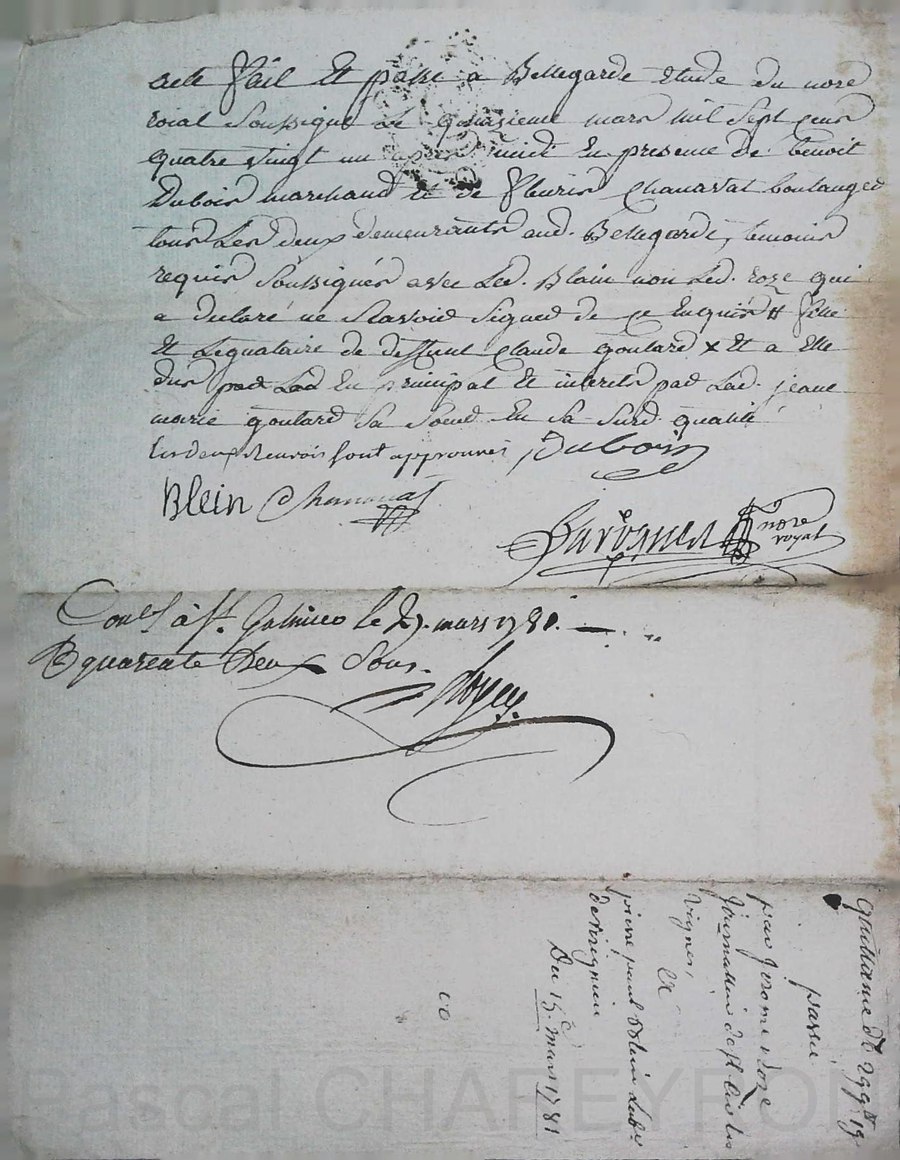 acte fait et passé a Bellegarde etude du nore
roial soussigné le quinzieme mars mil sept cens
quatre vingt un apres midi En presence de benoit
Dubois marchand et de fleuris Chanavat boulanger
tous Les deux demeurants aud. Bellegarde, temoins
requis soussignés avec Led. Blain non Led. roze qui
a declaré ne Scavoir Signer de ce Enquis # fille
Et Leguataire de deffunt Claude goutard x Et a Elle
dus par Lad En principal Et interets par Lad. jeane
marie goutard Sa Soeur En Sa Surd. qualité
Les deux Renvois sont approuvés Dubois
Blein Chanavat
nore
royal
à St. le 27. mars 1781.
R quarente Deux Sous.
quittance de 299# 19
passée
par jerome roze
vignes,
pierre paul Blein
Du 15e. mars 1781
Pascal CHAPEYRON